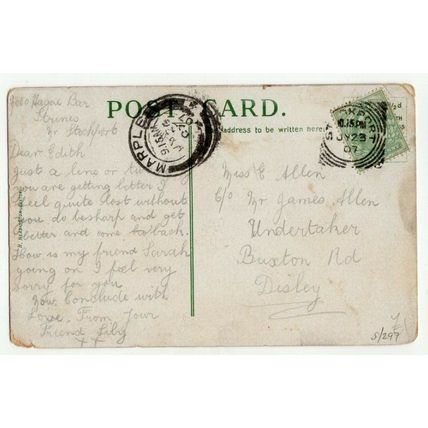 Hague Bar
Strines
Nr Stockport
Dear Edith
Just a line or two
you are getting better I
feel quite lost without
you do besharp and get
better and come back.
How is my friend Sarah
going on I feel very
sorry for you
Now Conclude with
Love. From Your
Friend Lily
POST CARD.
address to be written here
MARPLE
915AM
JY 24
07
STOCKPORT
JY23
07
½d
Miss E Allen
C/o Mr James Allen
Undertaker
Buxton Rd
Disley
5/297